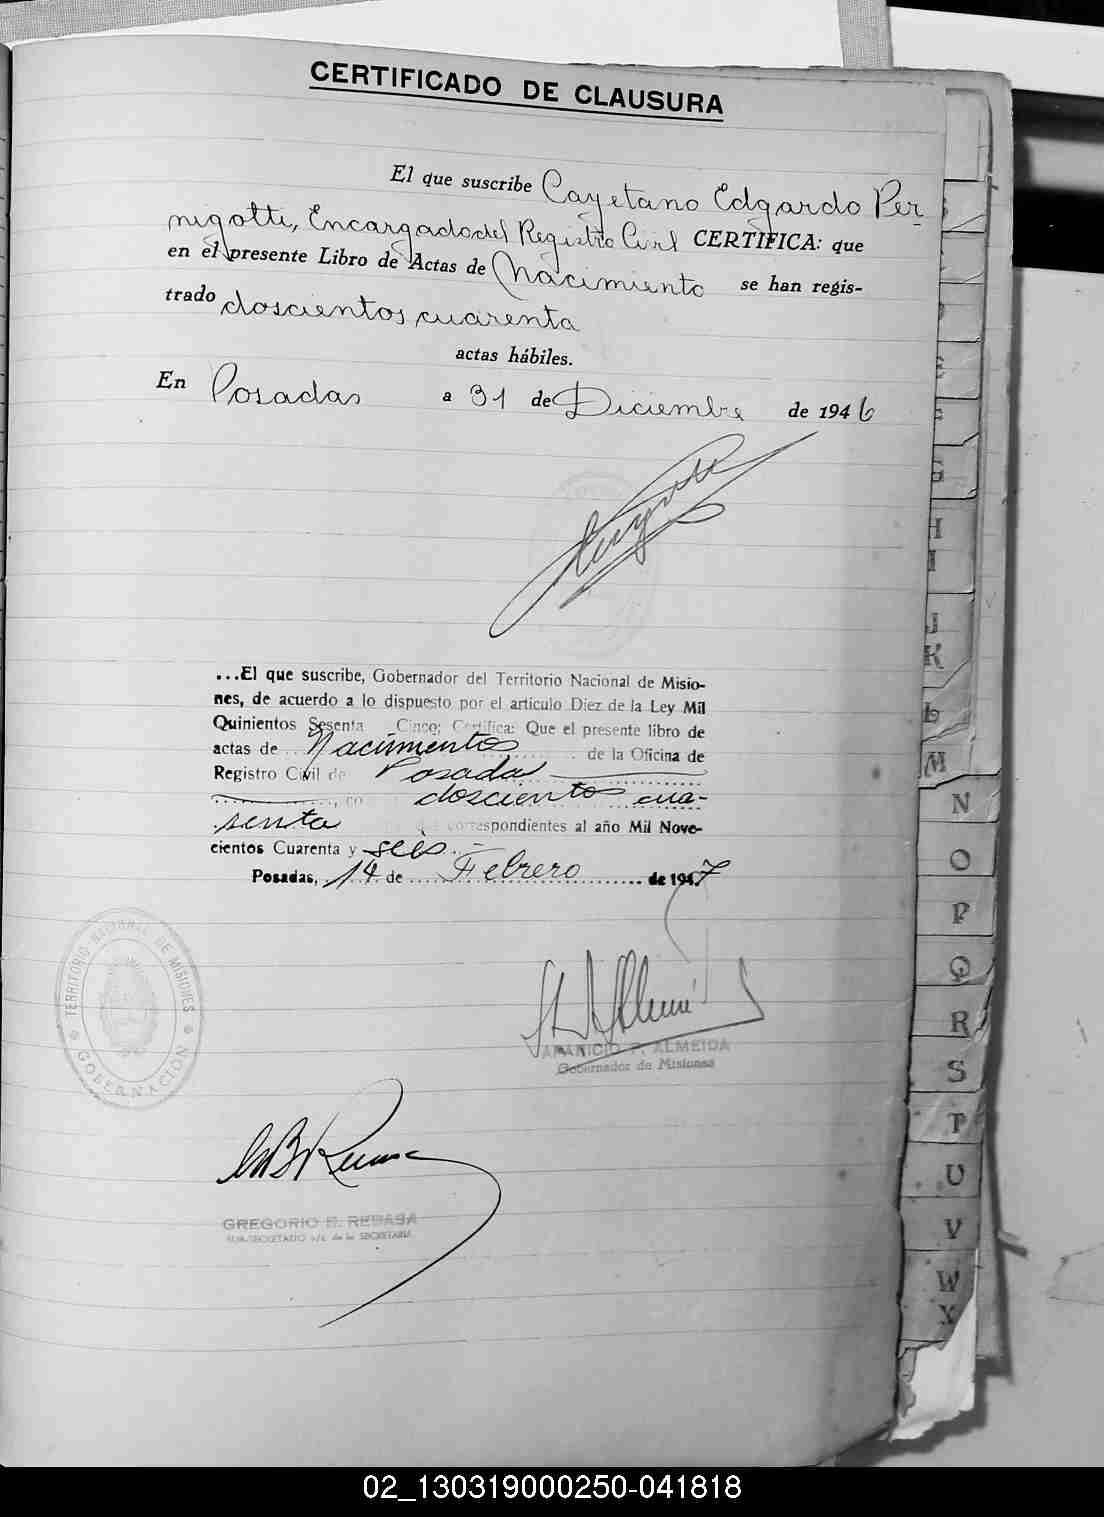 CERTIFICADO DE CLAUSURA
El que suscribe Cayetano Edgardo Per-
nigotti, Encargado del Registro Civil CERTIFICA: que
en el presente Libro de Actas de Nacimiento se han regis-
trado doscientos cuarenta
actas hábiles.
En Posadas a 31 de Diciembre de 1946
...El que suscribe, Gobernador del Territorio Nacional de Misio-
nes, de acuerdo a lo dispuesto por el artículo Diez de la Ley Mil
Quinientos Sesenta Cinco; Certifica: Que el presente libro de
actas de Nacimientos de la Oficina de
Registro Civil de Posadas
, co doscientos cua-
renta correspondientes al año Mil Nove-
cientos Cuarenta y seis
Posadas, 14 de Febrero de 1947
TERRITORIO NACIONAL DE MISIONES
GOBERNACIÓN
APARICIO P. ALMEIDA
Gobernador de Misiones
GREGORIO B. REBASA
SUB-SECRETARIO a/c de la SECRETARIA
E
F
G
H
I
J
K
L
M
N
O
P
Q
R
S
T
U
V
W
X
02_130319000250-041818